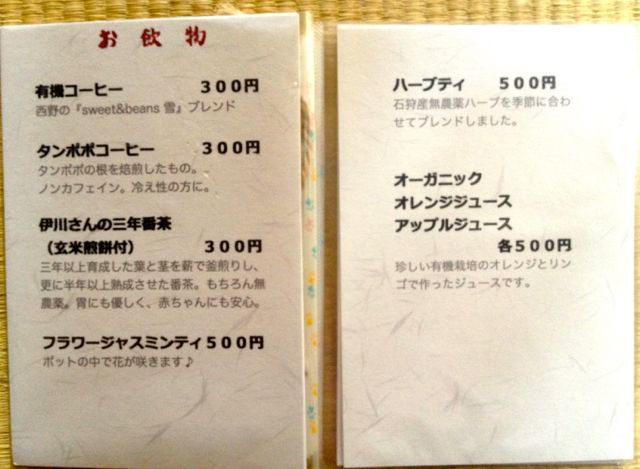 お飲物
有機コーヒー 300円
西野の『sweet&beans 雪』ブレンド
タンポポコーヒー 300円
タンポポの根を焙煎したもの。
ノンカフェイン。冷え性の方に。
伊川さんの三年番茶
（玄米煎餅付） 300円
三年以上育成した葉と茎を薪で釜煎りし、
更に半年以上熟成させた番茶。もちろん無
農薬。胃にも優しく、赤ちゃんにも安心。
フラワージャスミンティ500円
ポットの中で花が咲きます♪
ハーブティ 500円
石狩産無農薬ハーブを季節に合わ
せてブレンドしました。
オーガニック
オレンジジュース
アップルジュース
各500円
珍しい有機栽培のオレンジとリン
ゴで作ったジュースです。